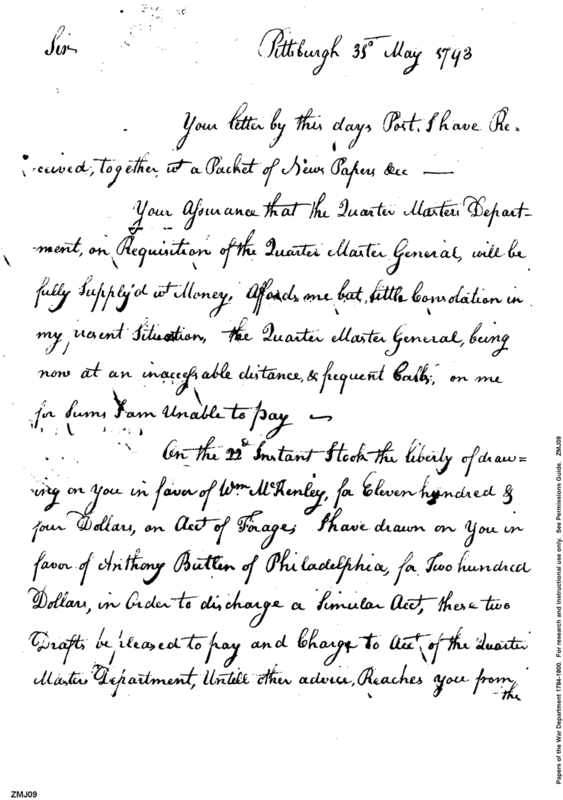 Sir Pittsburgh 31st May 1793
Your letter by this days Post. I have Re-
ceived, together wt a Packet of News Papers &cc —
Your Assurance that the Quarter Masters Depart-
ment, on Requisition of the Quarter Master General, will be
fully Supply'd wt Money, Affords me but little Consolation in
my present Situation, the Quarter Master General, being
now at an inaccessable distance, & frequent Calls, on me
for Sums I am Unable to pay —
On the 22d Instant I took the liberty of draw=
ing on you in favor of Wm McKenley, for Eleven hundred &
four Dollars, on Acct of Forage; I have drawn on You in
favor of Anthony Butler of Philadelphia, for Two hundred
Dollars, in Order to discharge a Simular Acct, these two
Drafts be pleased to pay and Charge to Acct of the Quarter
Masters Department, Untill other advice, Reaches you from
the
ZMJ09
Papers of the War Department 1784-1800. For research and instructional use only. See Permissions Guide. ZMJ09